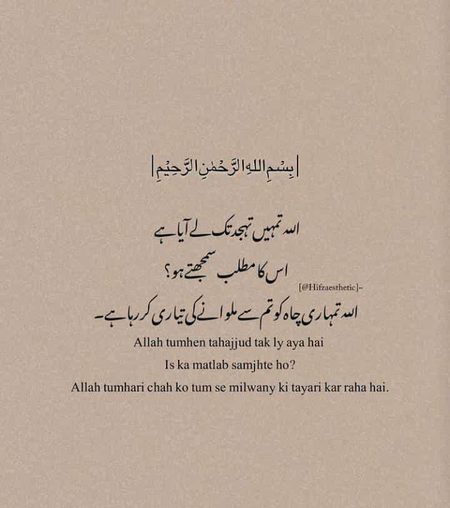 |بِسْمِ اللهِ الرَّحْمٰنِ الرَّحِيْمِ|
اللہ تمہیں تہجد تک لے آیا ہے
اس کا مطلب سمجھتے ہو؟
[@Hifraesthetic]~
اللہ تمہاری چاہ کو تم سے ملوانے کی تیاری کر رہا ہے۔
Allah tumhen tahajjud tak ly aya hai
Is ka matlab samjhte ho?
Allah tumhari chah ko tum se milwany ki tayari kar raha hai.